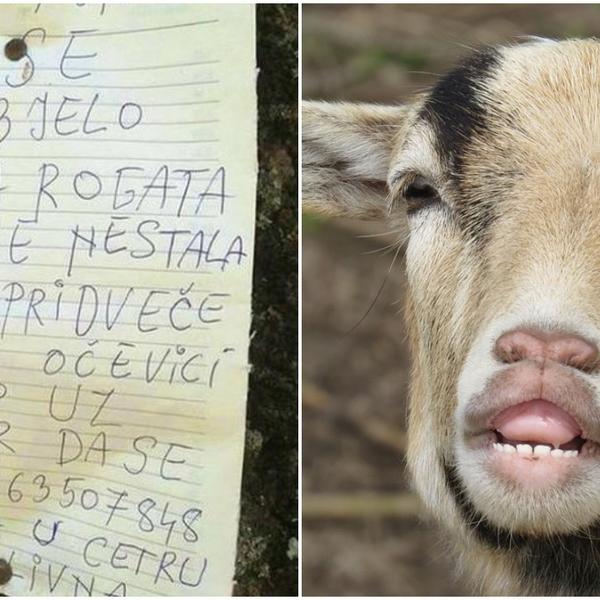 SE
BJELO
ROGATA
E NESTALA
PRIDVEČE
OČEVICI
UZ
R DA SE
63507848
U CETRU
LIVNA